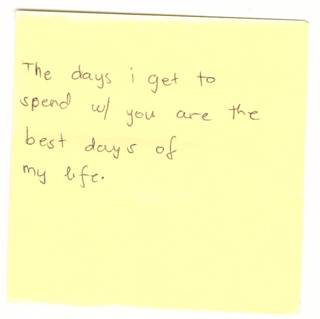 The days i get to
spend w/ you are the
best days of
my life.